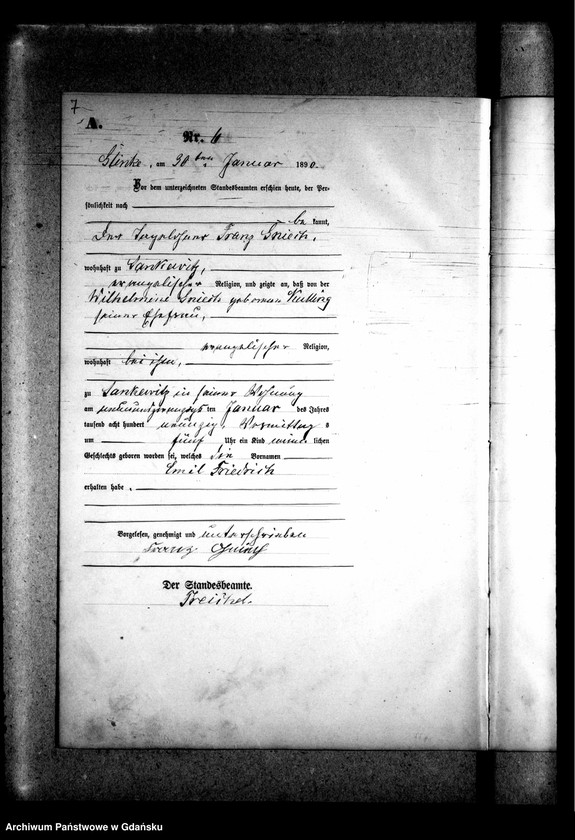 7
A.
Nr. 6
Glinke, am 30ten Januar 1890.
Vor dem unterzeichneten Standesbeamten erschien heute, der Per-
sönlichkeit nach
be kannt,
Der Tagelöhner Franz
wohnhaft zu Tankewitz,
evangelischer Religion, und zeigte an, daß von der
Wilhelmine geborenen
seiner Ehefrau,
evangelischer Religion,
wohnhaft bei ihm,
zu Tankewitz in seiner Wohnung
am neunundzwanzigsten Januar des Jahres
tausend acht hundert neunzig, Vormittags
um fünf Uhr ein Kind männlichen
Geschlechts geboren worden sei, welches die Vornamen
Emil Friedrich
erhalten habe.
Vorgelesen, genehmigt und unterschrieben
Franz
Der Standesbeamte.
Treichel.
Archiwum Państwowe w Gdańsku